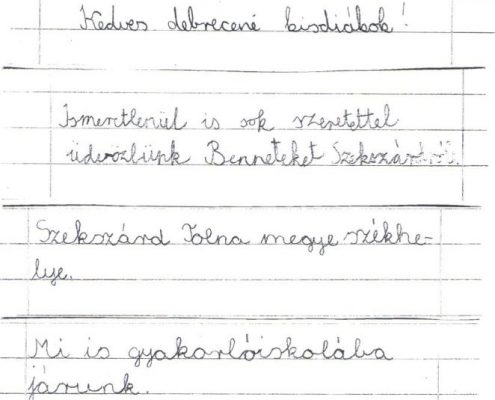 Kedves debrecené kisdiákok!
Ismeretlenül is sok szeretettel
üdvözlünk Benneteket Szekszárdról.
Szekszárd Tolna megye székhe-
lye.
Mi is gyakorlóiskolába
járunk.